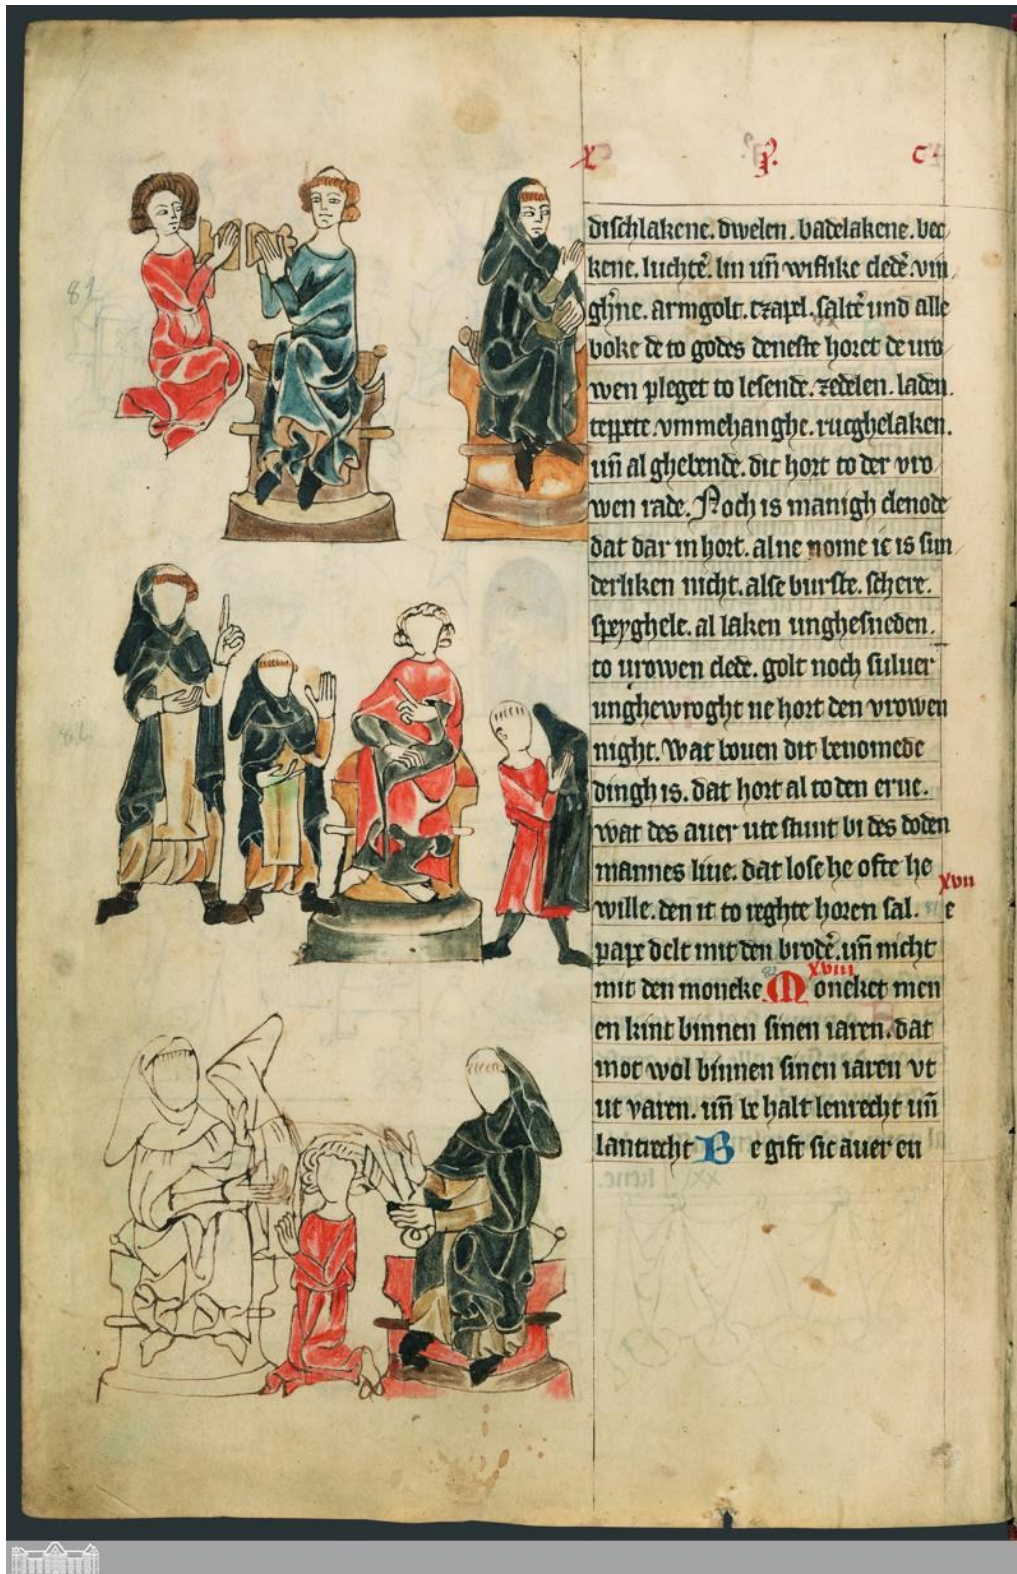 X P. C
dischlakene. dwelen. badelakene. bec
kene. luchtē. lin uñ wiflike cledē. vin
gh'ne. armgolt. tzapel. saltē und alle
boke de to godes deneste horet de uro
wen pleget to lesende. zedelen. laden.
teppete. vmmehanghe. rucghelaken.
uñ al ghebende. dit hort to der vro
wen rade. Noch is manigh clenode
dat dar in hort. al ne nome ic is sun
derliken nicht. alse burste. schere.
speyghele. al laken unghesneden.
to urowen clede. golt noch suluer
unghewroght ne hort den vrowen
night. Wat bouen dit benomede
dingh is. dat hort al to den erue.
wat des auer ute stunt bi des doden
mannes liue. dat lose he ofte he
xvii
wille. den it to reghte horen sal. e
pape delt mit den brodē. uñ nicht
xviii
mit den moneke Moneket men
en kint binnen sinen iaren. dat
mot wol binnen sinen iaren vt
ut varen. uñ be halt lenrecht uñ
lantrecht Be gift sic auer en
81
82